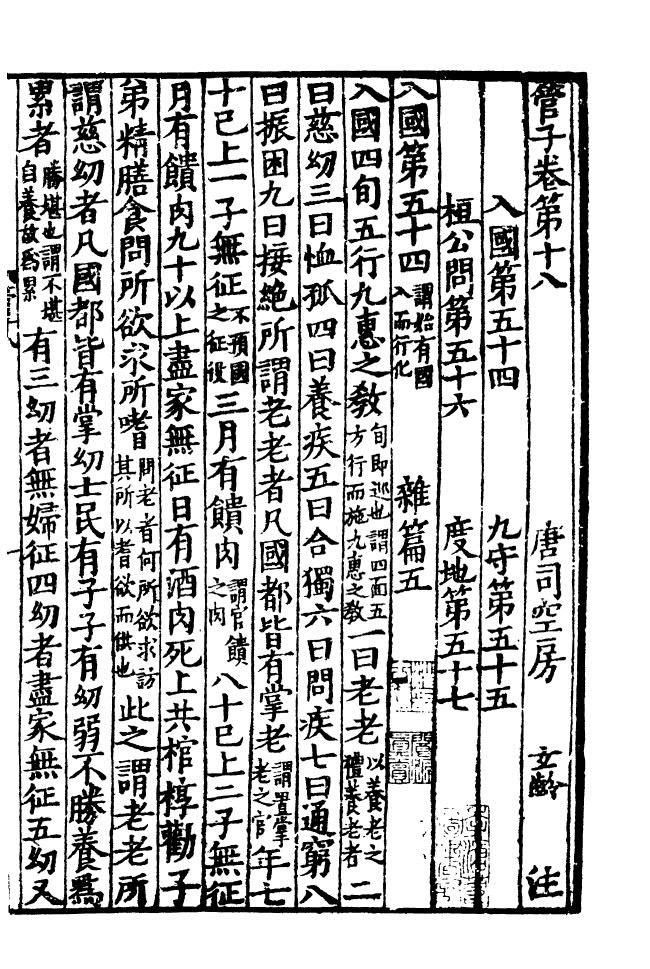 管子卷第十八　唐司空房　玄齡　注
入國第五十四　九守第五十五
桓公問第五十六　度地第五十七
入國第五十四謂始有國入而行化　雜篇五
入國四旬五行九惠之教旬即巡也謂四面五方行而施九惠之教一曰老老以養老之禮養老者二
曰慈幼三曰恤孤四曰養疾五曰合獨六曰問疾七曰通窮八
曰振困九曰接絶所謂老老者凡國都皆有掌老謂置掌老之官年七
十已上一子無征不預國之征役三月有饋肉謂官饋之肉八十已上二子無征
月有饋肉九十以上盡家無征日有酒肉死上共棺椁勸子
弟精膳食問所欲求所嗜問老者何所欲求訪其所以耆欲而供也此之謂老老所
謂慈幼者凡國都皆有掌幼士民有子子有幼弱不勝養爲
累者勝堪也謂不堪自養故爲累有三幼者無婦征四幼者盡家無征五幼又